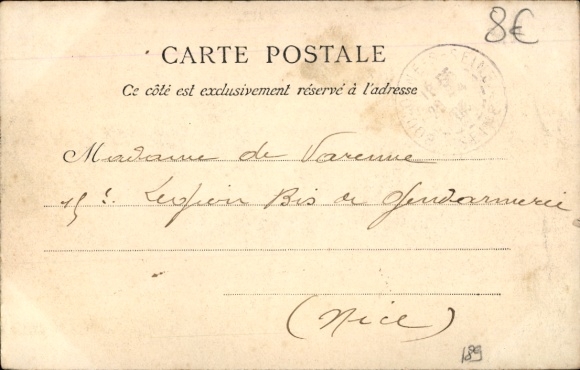 8€
CARTE POSTALE
Ce côté est exclusivement réservé à l'adresse
Madame de Varenne
15e. Legion Bis de Gendarmerie
(Nice)
189